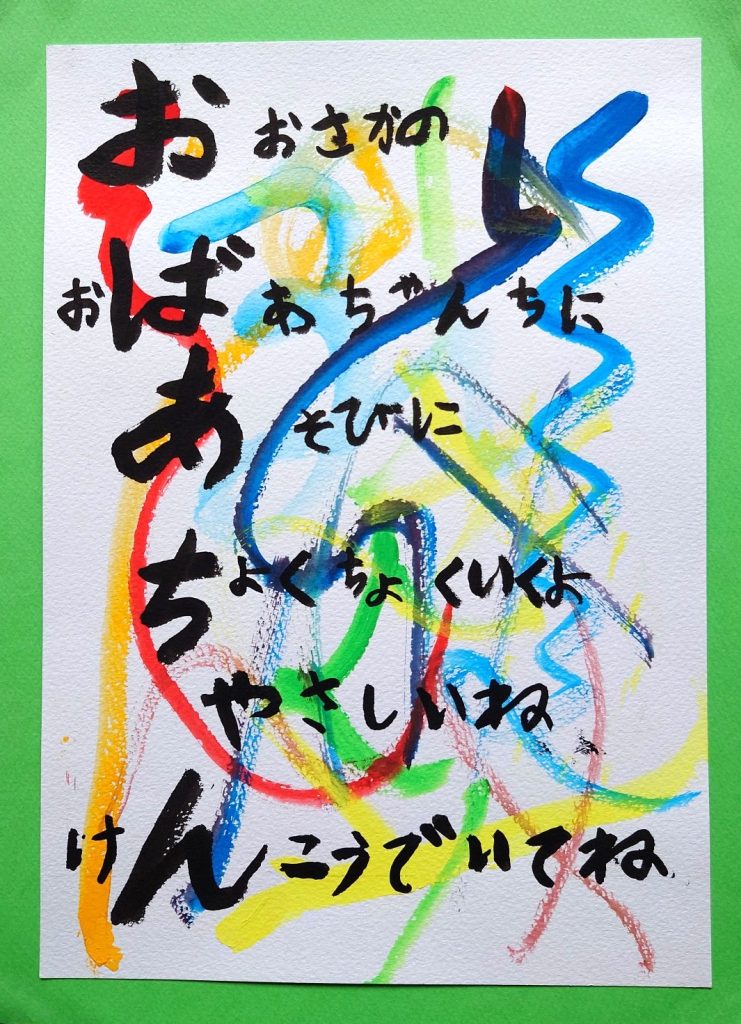 お おさかの
おばあちゃんちに
あ そびに
ちょくちょくいくよ
やさしいね
けんこうでいてね